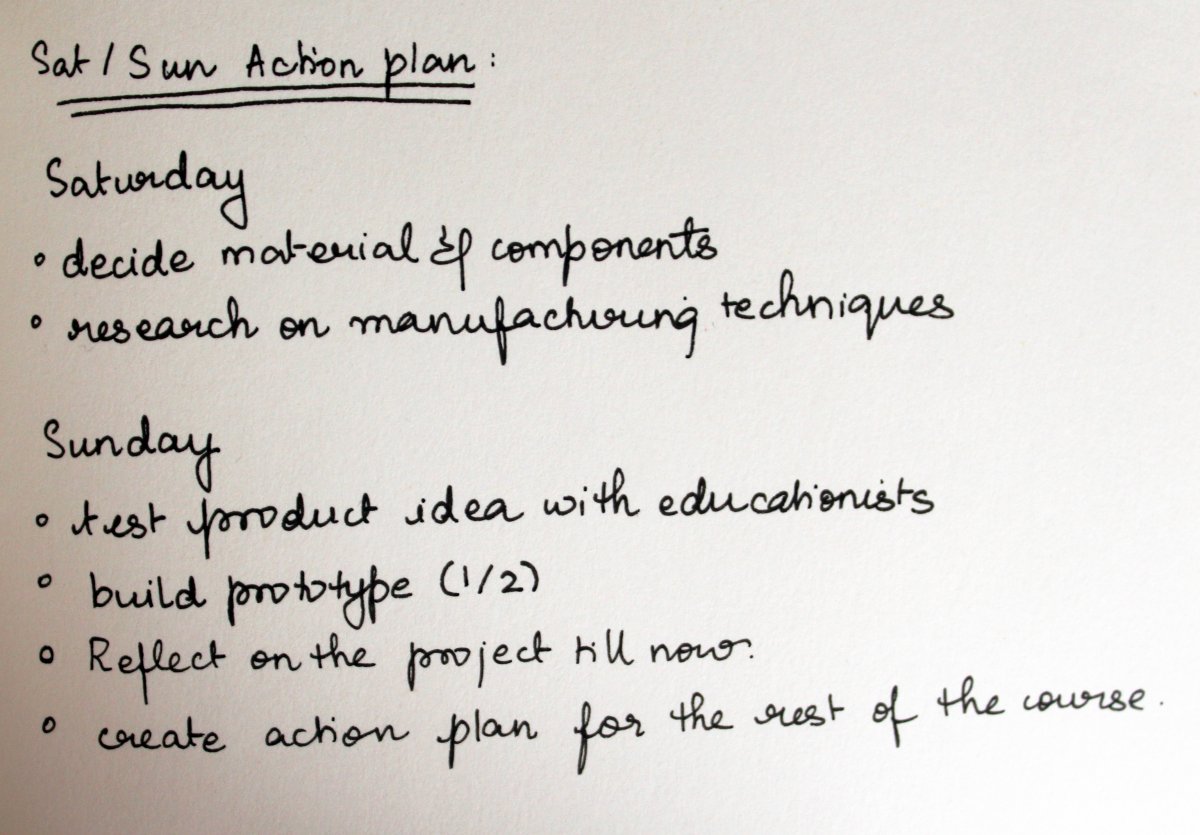 Sat / Sun Action plan :
Saturday
• decide material & components
• research on manufacturing techniques
Sunday
• test product idea with educationists
• build prototype (1/2)
• Reflect on the project till now.
• create action plan for the rest of the course.